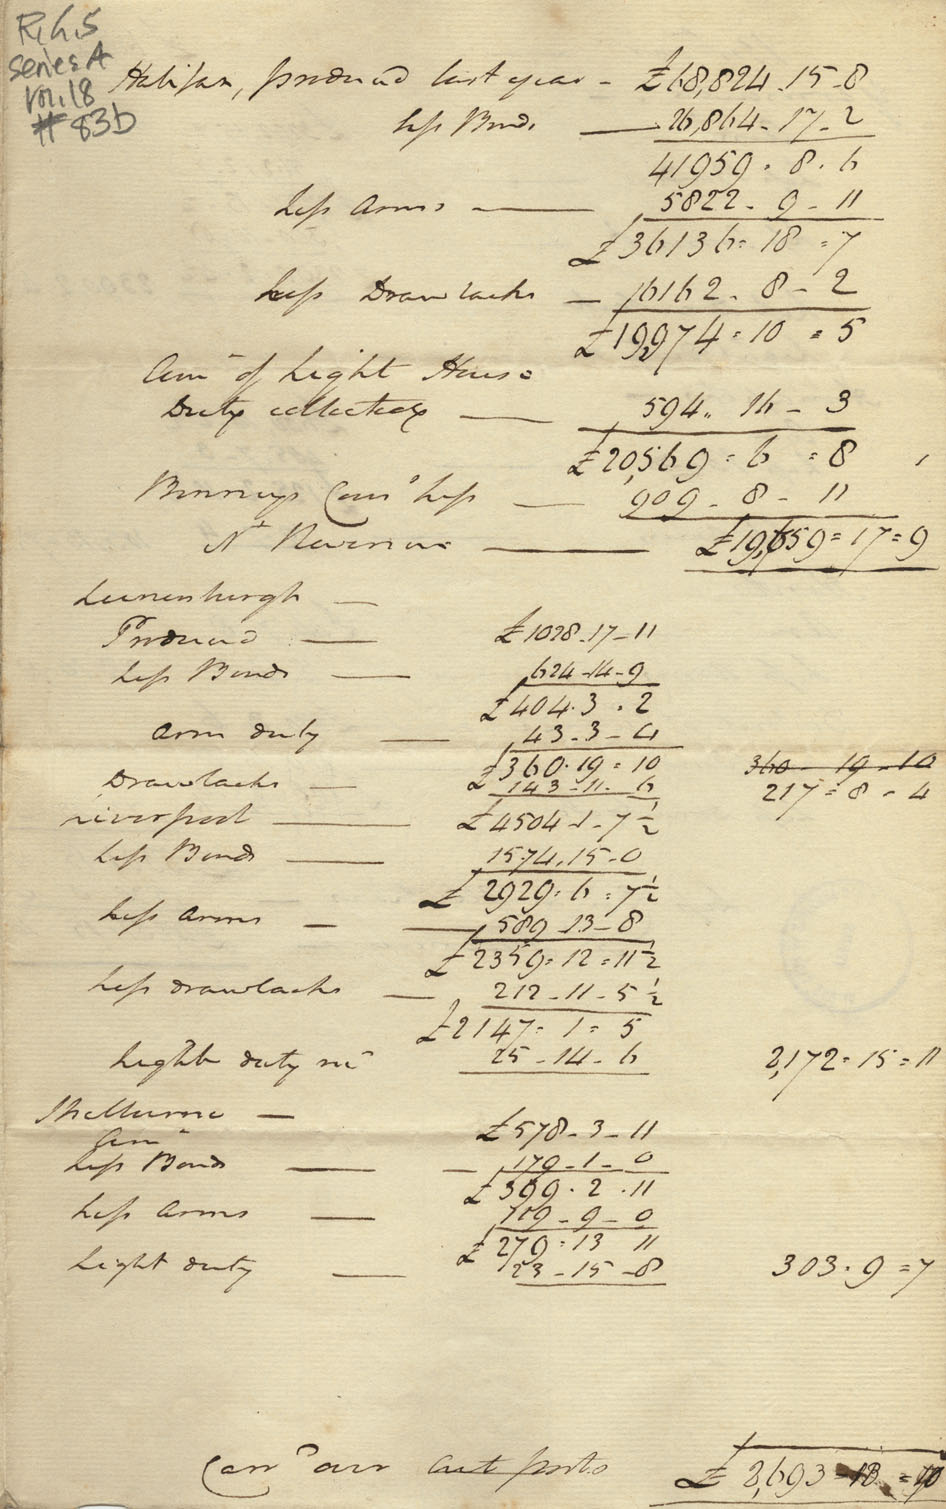 R.G.5
series A
vol. 18
# 83b
Halifax, produced last year - £68,824.15-8
less Bonds — 26,864-17-2
41959.8.6
less arms — 5822-9-11
£36136=18=7
less Drawbacks — 16162-8-2
£19,974=10=5
Amt of Light House
Duty collected — 594.. 16-3
£20,569=6=8
Binneys Comn less — 909-8-11
Nt Revenue — £19,659=17=9
Lunenburgh —
Produced — £1028-17-11
less Bonds — 624-14-9
£404.3.2
arm duty — 43-3-4
£360.19=10 360-19-10
Drawbacks — 143-11-6 217=8-4
Liverpool — £4504-1-7½
less Bonds — 1574.15-0
£2929=6=7½
less arms — 589-13-8
£2359=12=11½
less drawbacks — 212-11-5½
£2147=1=5
Light duty — 25-14-6 2,172=15=11
Shelburne —
Amt £578-3-11
less Bonds — 179-1-0
£399.2.11
less arms — 119-9-0
£279=13 11
Light duty — 23-15-8 303.9=7
Carrd over out ports £2,693